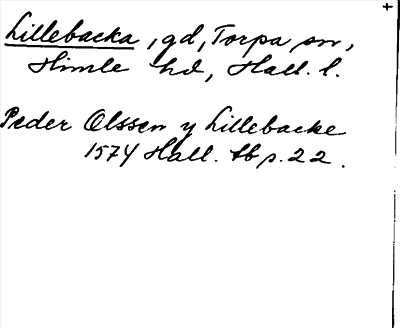 Lillebacka, gd, Torpa sn,
Himle hd, Hall. l.
Peder Olssen y Lillebacke
1574 Hall. tb s. 22.